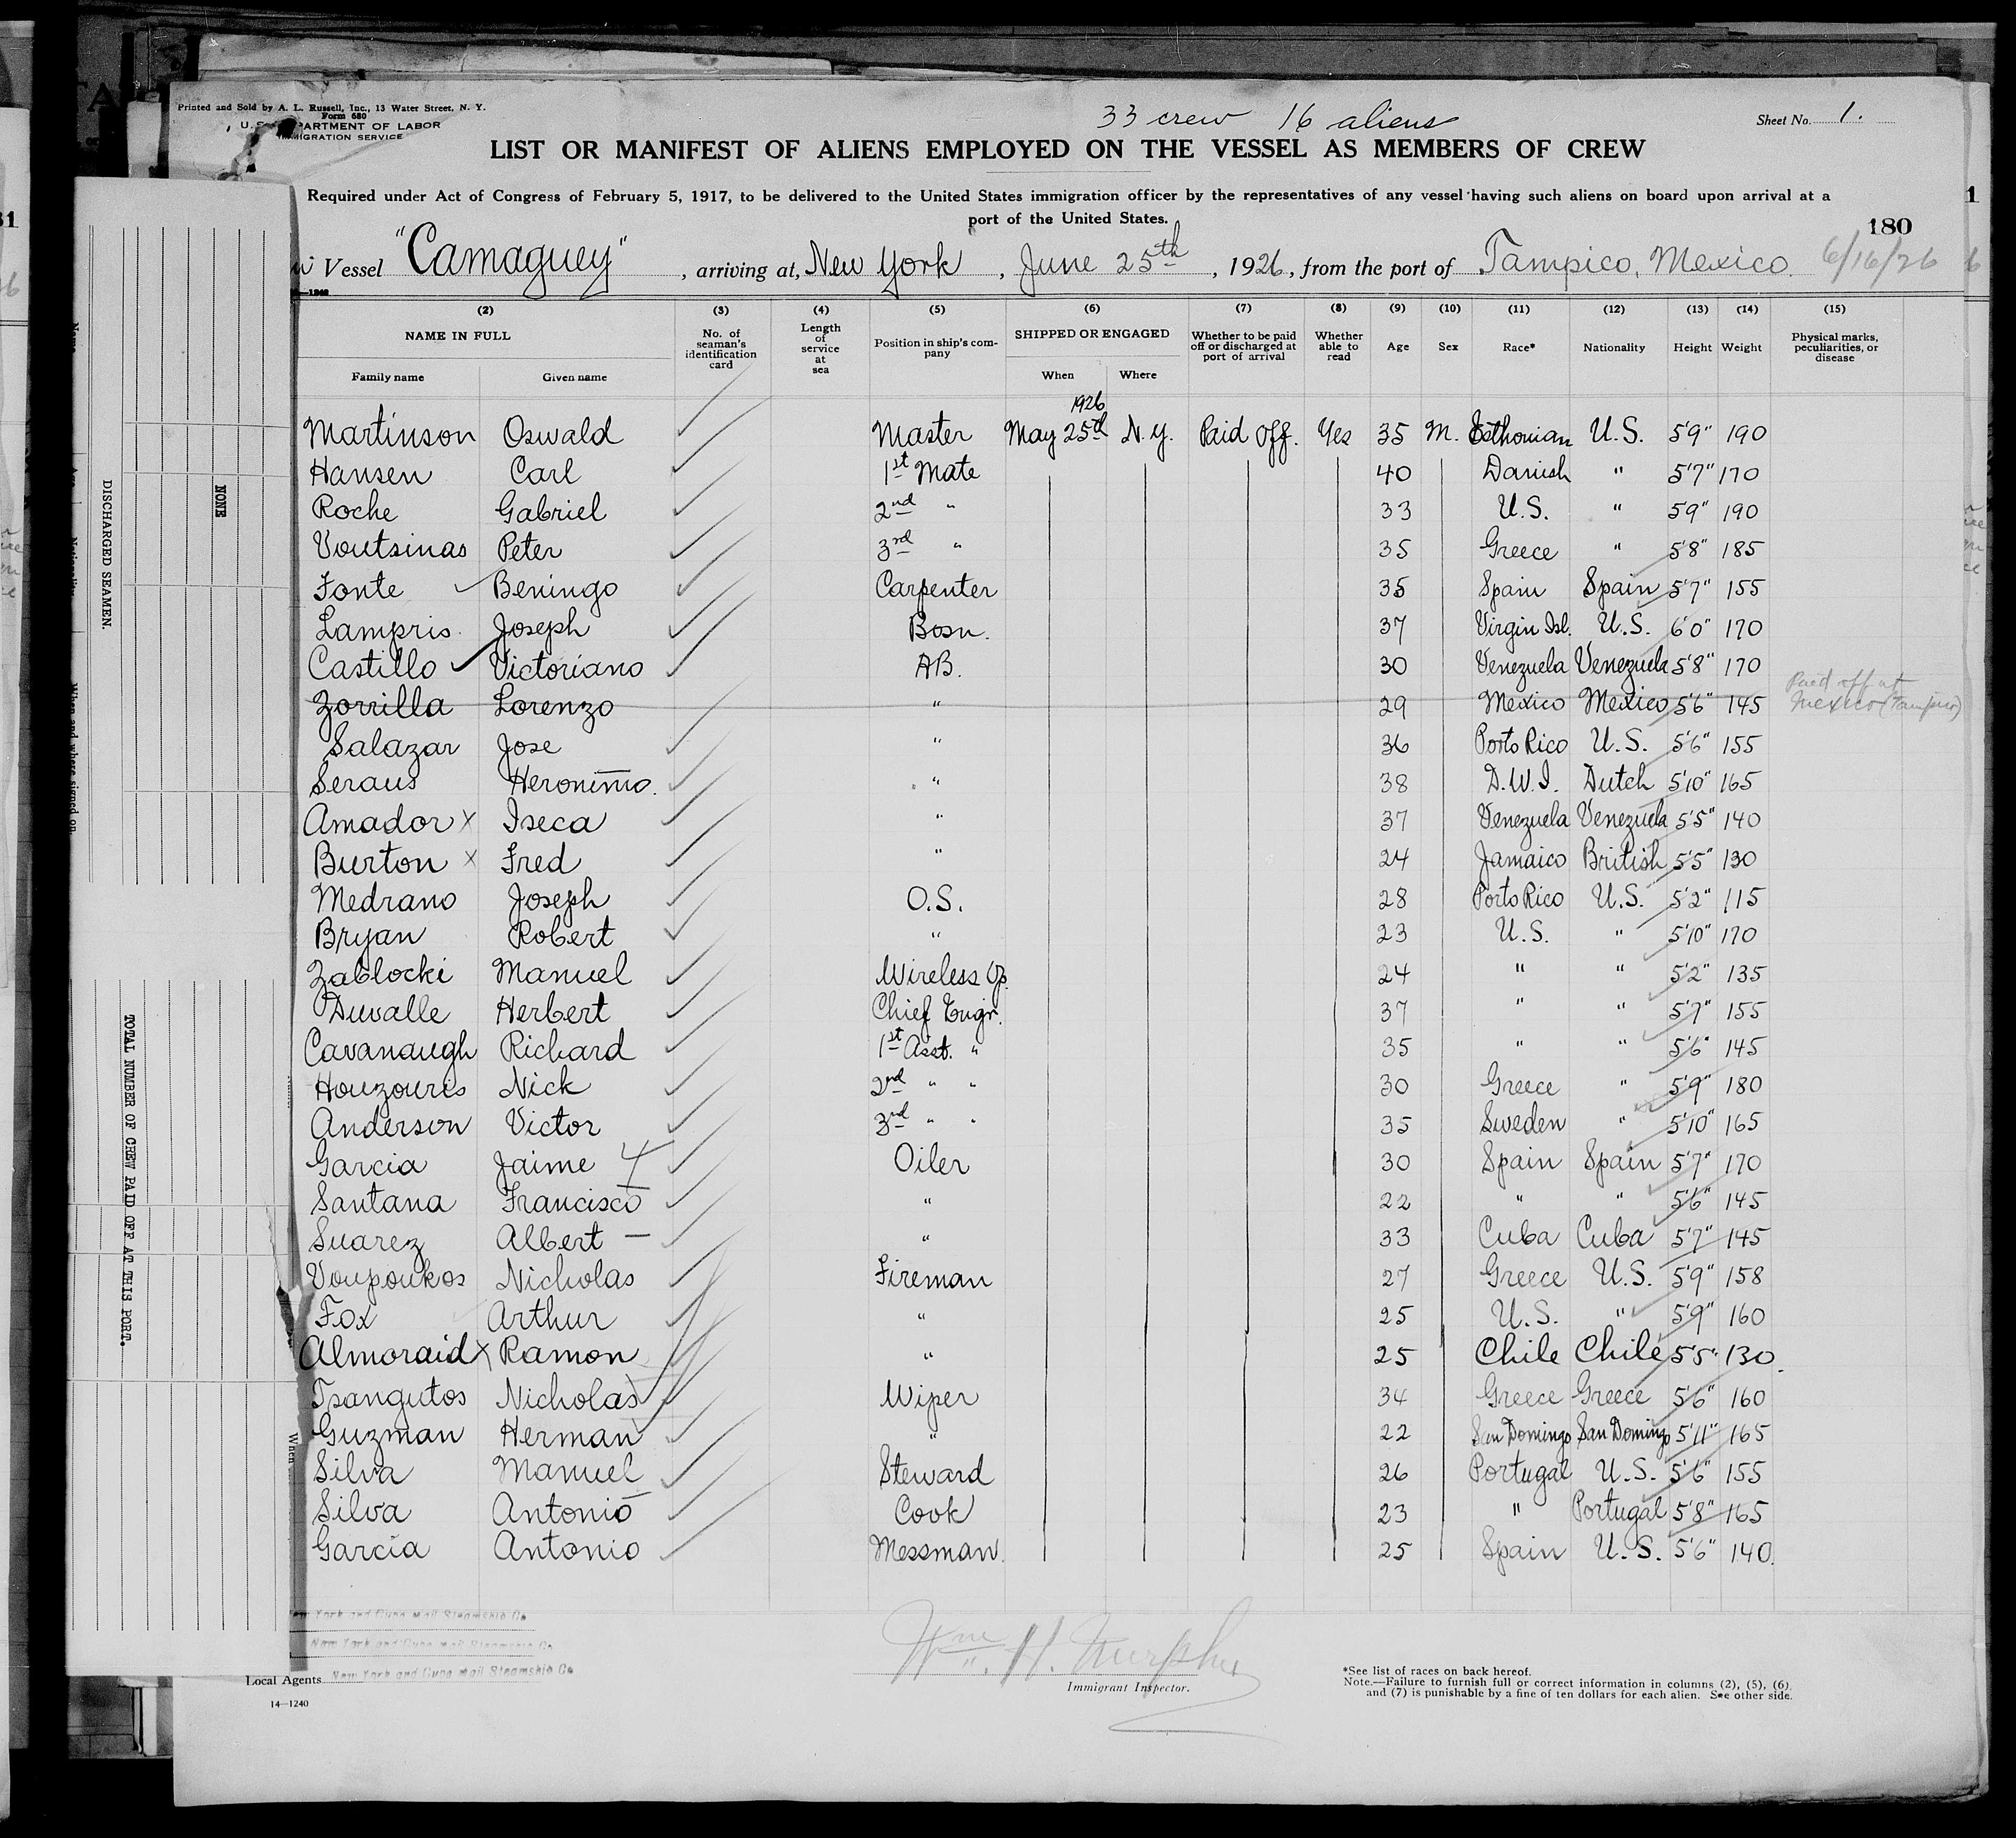 Printed and Sold by A. L. Russell, Inc., 13 Water Street, N. Y.
Form 680
U. S. DEPARTMENT OF LABOR
IMMIGRATION SERVICE
33 crew 16 aliens
Sheet No. 1.
LIST OR MANIFEST OF ALIENS EMPLOYED ON THE VESSEL AS MEMBERS OF CREW
Required under Act of Congress of February 5, 1917, to be delivered to the United States immigration officer by the representatives of any vessel having such aliens on board upon arrival at a
port of the United States.
180
Vessel "Camaguey", arriving at, New York, June 25th, 1926, from the port of Tampico, Mexico. 6/16/26
(2) (3) (4) (5) (6) (7) (8) (9) (10) (11) (12) (13) (14) (15)
NAME IN FULL No. of seaman's identification card Length of service at sea Position in ship's company SHIPPED OR ENGAGED Whether to be paid off or discharged at port of arrival Whether able to read Age Sex Race* Nationality Height Weight Physical marks, peculiarities, or disease
Family name Given name When Where
1926
Martinson Oswald Master May 25th N.Y. Paid Off. Yes 35 M. Esthonian U.S. 5'9" 190
Hansen Carl 1st Mate 40 Danish " 5'7" 170
Roche Gabriel 2nd " 33 U.S. " 5'9" 190
Voutsinas Peter 3rd " 35 Greece " 5'8" 185
Fonte Beningo Carpenter 35 Spain Spain 5'7" 155
Lampris Joseph Bosn. 37 Virgin Isl. U.S. 6'0" 170
Castillo Victoriano AB. 30 Venezuela Venezuela 5'8" 170
Zorrilla Lorenzo " 29 Mexico Mexico 5'6" 145 Paid off at Mexico (Tampico)
Salazar Jose " 36 Porto Rico U.S. 5'6" 155
Seraus Heronimo. " 38 D.W.I. Dutch 5'10" 165
Amador x Iseca " 37 Venezuela Venezuela 5'5" 140
Burton x Fred " 24 Jamaico British 5'5" 130
Medrano Joseph O.S. 28 Porto Rico U.S. 5'2" 115
Bryan Robert " 23 U.S. " 5'10" 170
Zablocki Manuel Wireless Op. 24 " " 5'2" 135
Duvalle Herbert Chief Engr. 37 " " 5'7" 155
Cavanaugh Richard 1st Asst. " 35 " " 5'6" 145
Houzouris Nick 2nd " " 30 Greece " 5'9" 180
Anderson Victor 3rd " " 35 Sweden " 5'10" 165
Garcia Jaime Oiler 30 Spain Spain 5'7" 170
Santana Francisco " 22 " " 5'6" 145
Suarez Albert " 33 Cuba Cuba 5'7" 145
Voupoukos Nicholas Fireman 27 Greece U.S. 5'9" 158
Fox Arthur " 25 U.S. " 5'9" 160
Almoraid x Ramon " 25 Chile Chile 5'5" 130.
Tsangutos Nicholas Wiper 34 Greece Greece 5'6" 160
Guzman Herman " 22 San Domingo San Domingo 5'11" 165
Silva Manuel Steward 26 Portugal U.S. 5'6" 155
Silva Antonio Cook 23 " Portugal 5'8" 165
Garcia Antonio Messman. 25 Spain U.S. 5'6" 140.
New York and Cuba Mail Steamship Co.
New York and Cuba Mail Steamship Co.
Local Agents New York and Cuba Mail Steamship Co.
Wm. H. Murphy
Immigrant Inspector.
*See list of races on back hereof.
Note.—Failure to furnish full or correct information in columns (2), (5), (6),
and (7) is punishable by a fine of ten dollars for each alien. See other side.
14—1240
DISCHARGED SEAMEN.
NONE
When and where signed on.
TOTAL NUMBER OF CREW PAID OFF AT THIS PORT.
When